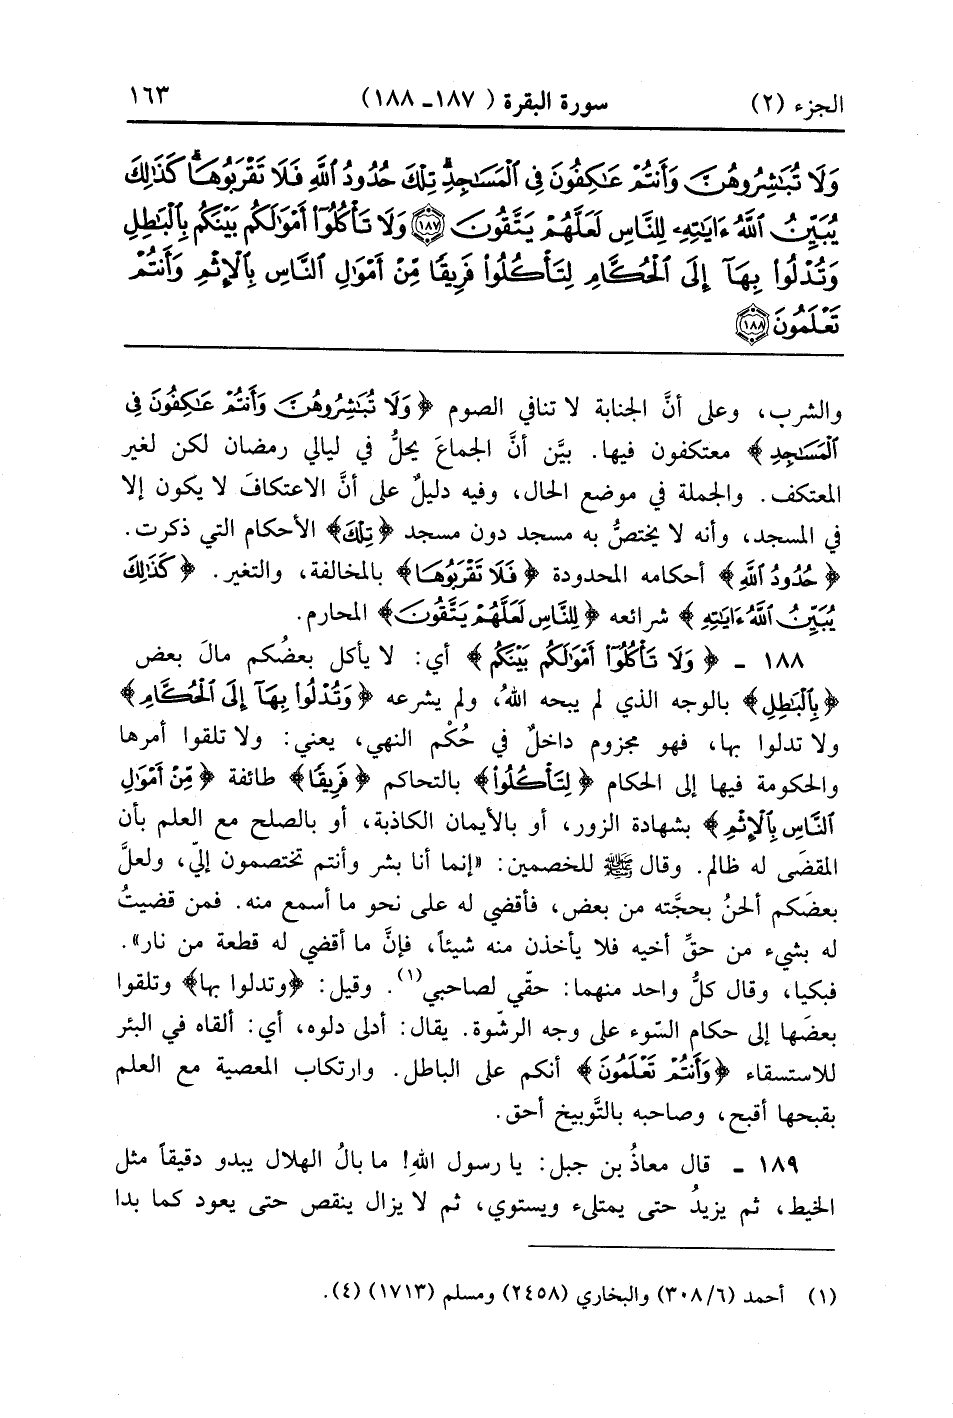 الجزء (٢) سورة البقرة ( ١٨٧ـ ١٨٨) ١٦٣
وَلَا تُبَٰشِرُوهُنَّ وَأَنتُمْ عَٰكِفُونَ فِى ٱلْمَسَٰجِدِ ۗ تِلْكَ حُدُودُ ٱللَّهِ فَلَا تَقْرَبُوهَا ۗ كَذَٰلِكَ
يُبَيِّنُ ٱللَّهُ ءَايَٰتِهِۦ لِلنَّاسِ لَعَلَّهُمْ يَتَّقُونَ ١٨٧ وَلَا تَأْكُلُوٓا۟ أَمْوَٰلَكُم بَيْنَكُم بِٱلْبَٰطِلِ
وَتُدْلُوا۟ بِهَآ إِلَى ٱلْحُكَّامِ لِتَأْكُلُوا۟ فَرِيقًا مِّنْ أَمْوَٰلِ ٱلنَّاسِ بِٱلْإِثْمِ وَأَنتُمْ
تَعْلَمُونَ ١٨٨
والشرب، وعلى أنَّ الجنابة لا تنافي الصوم ﴿ وَلَا تُبَٰشِرُوهُنَّ وَأَنتُمْ عَٰكِفُونَ فِى
ٱلْمَسَٰجِدِ ﴾ معتكفون فيها. بيَّن أنَّ الجماعَ يحلُّ في ليالي رمضان لكن لغير
المعتكف. والجملة في موضع الحال، وفيه دليلٌ على أنَّ الاعتكافَ لا يكون إلا
في المسجد، وأنه لا يختصُّ به مسجد دون مسجد ﴿تِلْكَ﴾ الأحكام التي ذكرت.
﴿ حُدُودُ ٱللَّهِ ﴾ أحكامه المحدودة ﴿فَلَا تَقْرَبُوهَا﴾ بالمخالفة، والتغير. ﴿ كَذَٰلِكَ
يُبَيِّنُ ٱللَّهُ ءَايَٰتِهِ ﴾ شرائعه ﴿لِلنَّاسِ لَعَلَّهُمْ يَتَّقُونَ﴾ المحارم.
١٨٨ ـ ﴿ وَلَا تَأْكُلُوٓا۟ أَمْوَٰلَكُم بَيْنَكُم ﴾ أي: لا يأكل بعضُكم مالَ بعض
﴿بِٱلْبَٰطِلِ﴾ بالوجه الذي لم يبحه اللهُ، ولم يشرعه ﴿وَتُدْلُوا۟ بِهَآ إِلَى ٱلْحُكَّامِ﴾
ولا تدلوا بها، فهو مجزوم داخلٌ في حُكْم النهي، يعني: ولا تلقوا أمرها
والحكومة فيها إلى الحكام ﴿لِتَأْكُلُوا۟﴾ بالتحاكم ﴿فَرِيقًا﴾ طائفة ﴿مِّنْ أَمْوَٰلِ
ٱلنَّاسِ بِٱلْإِثْمِ﴾ بشهادة الزور، أو بالأيمان الكاذبة، أو بالصلح مع العلم بأن
المقضَى له ظالم. وقال ﷺ للخصمين: «إنما أنا بشر وأنتم تختصمون إليّ، ولعلَّ
بعضَكم ألحنُ بحجَّته من بعض، فأقضي له على نحو ما أسمع منه. فمن قضيتُ
له بشيء من حقِّ أخيه فلا يأخذن منه شيئاً، فإنَّ ما أقضي له قطعة من نار».
فبكيا، وقال كلُّ واحد منهما: حقّي لصاحبي(١). وقيل: ﴿وتدلوا بها﴾ وتلقوا
بعضَها إلى حكام السّوء على وجه الرشّوة. يقال: أدلى دلوه، أي: ألقاه في البئر
للاستسقاء ﴿وَأَنتُمْ تَعْلَمُونَ﴾ أنكم على الباطل. وارتكاب المعصية مع العلم
بقبحها أقبح، وصاحبه بالتَّوبيخ أحق.
١٨٩ ـ قال معاذُ بن جبل: يا رسول اللهِ! ما بالُ الهلال يبدو دقيقاً مثل
الخيط، ثم يزيدُ حتى يمتلىء ويستوي، ثم لا يزال ينقص حتى يعود كما بدا
(١) أحمد (٣٠٨/٦) والبخاري (٢٤٥٨) ومسلم (١٧١٣) (٤).